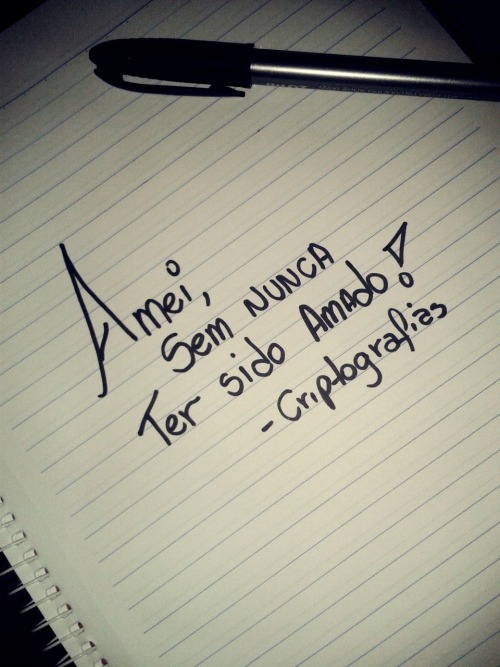 Amei,
Sem NUNCA
Ter sido AMADO!
-Criptografias